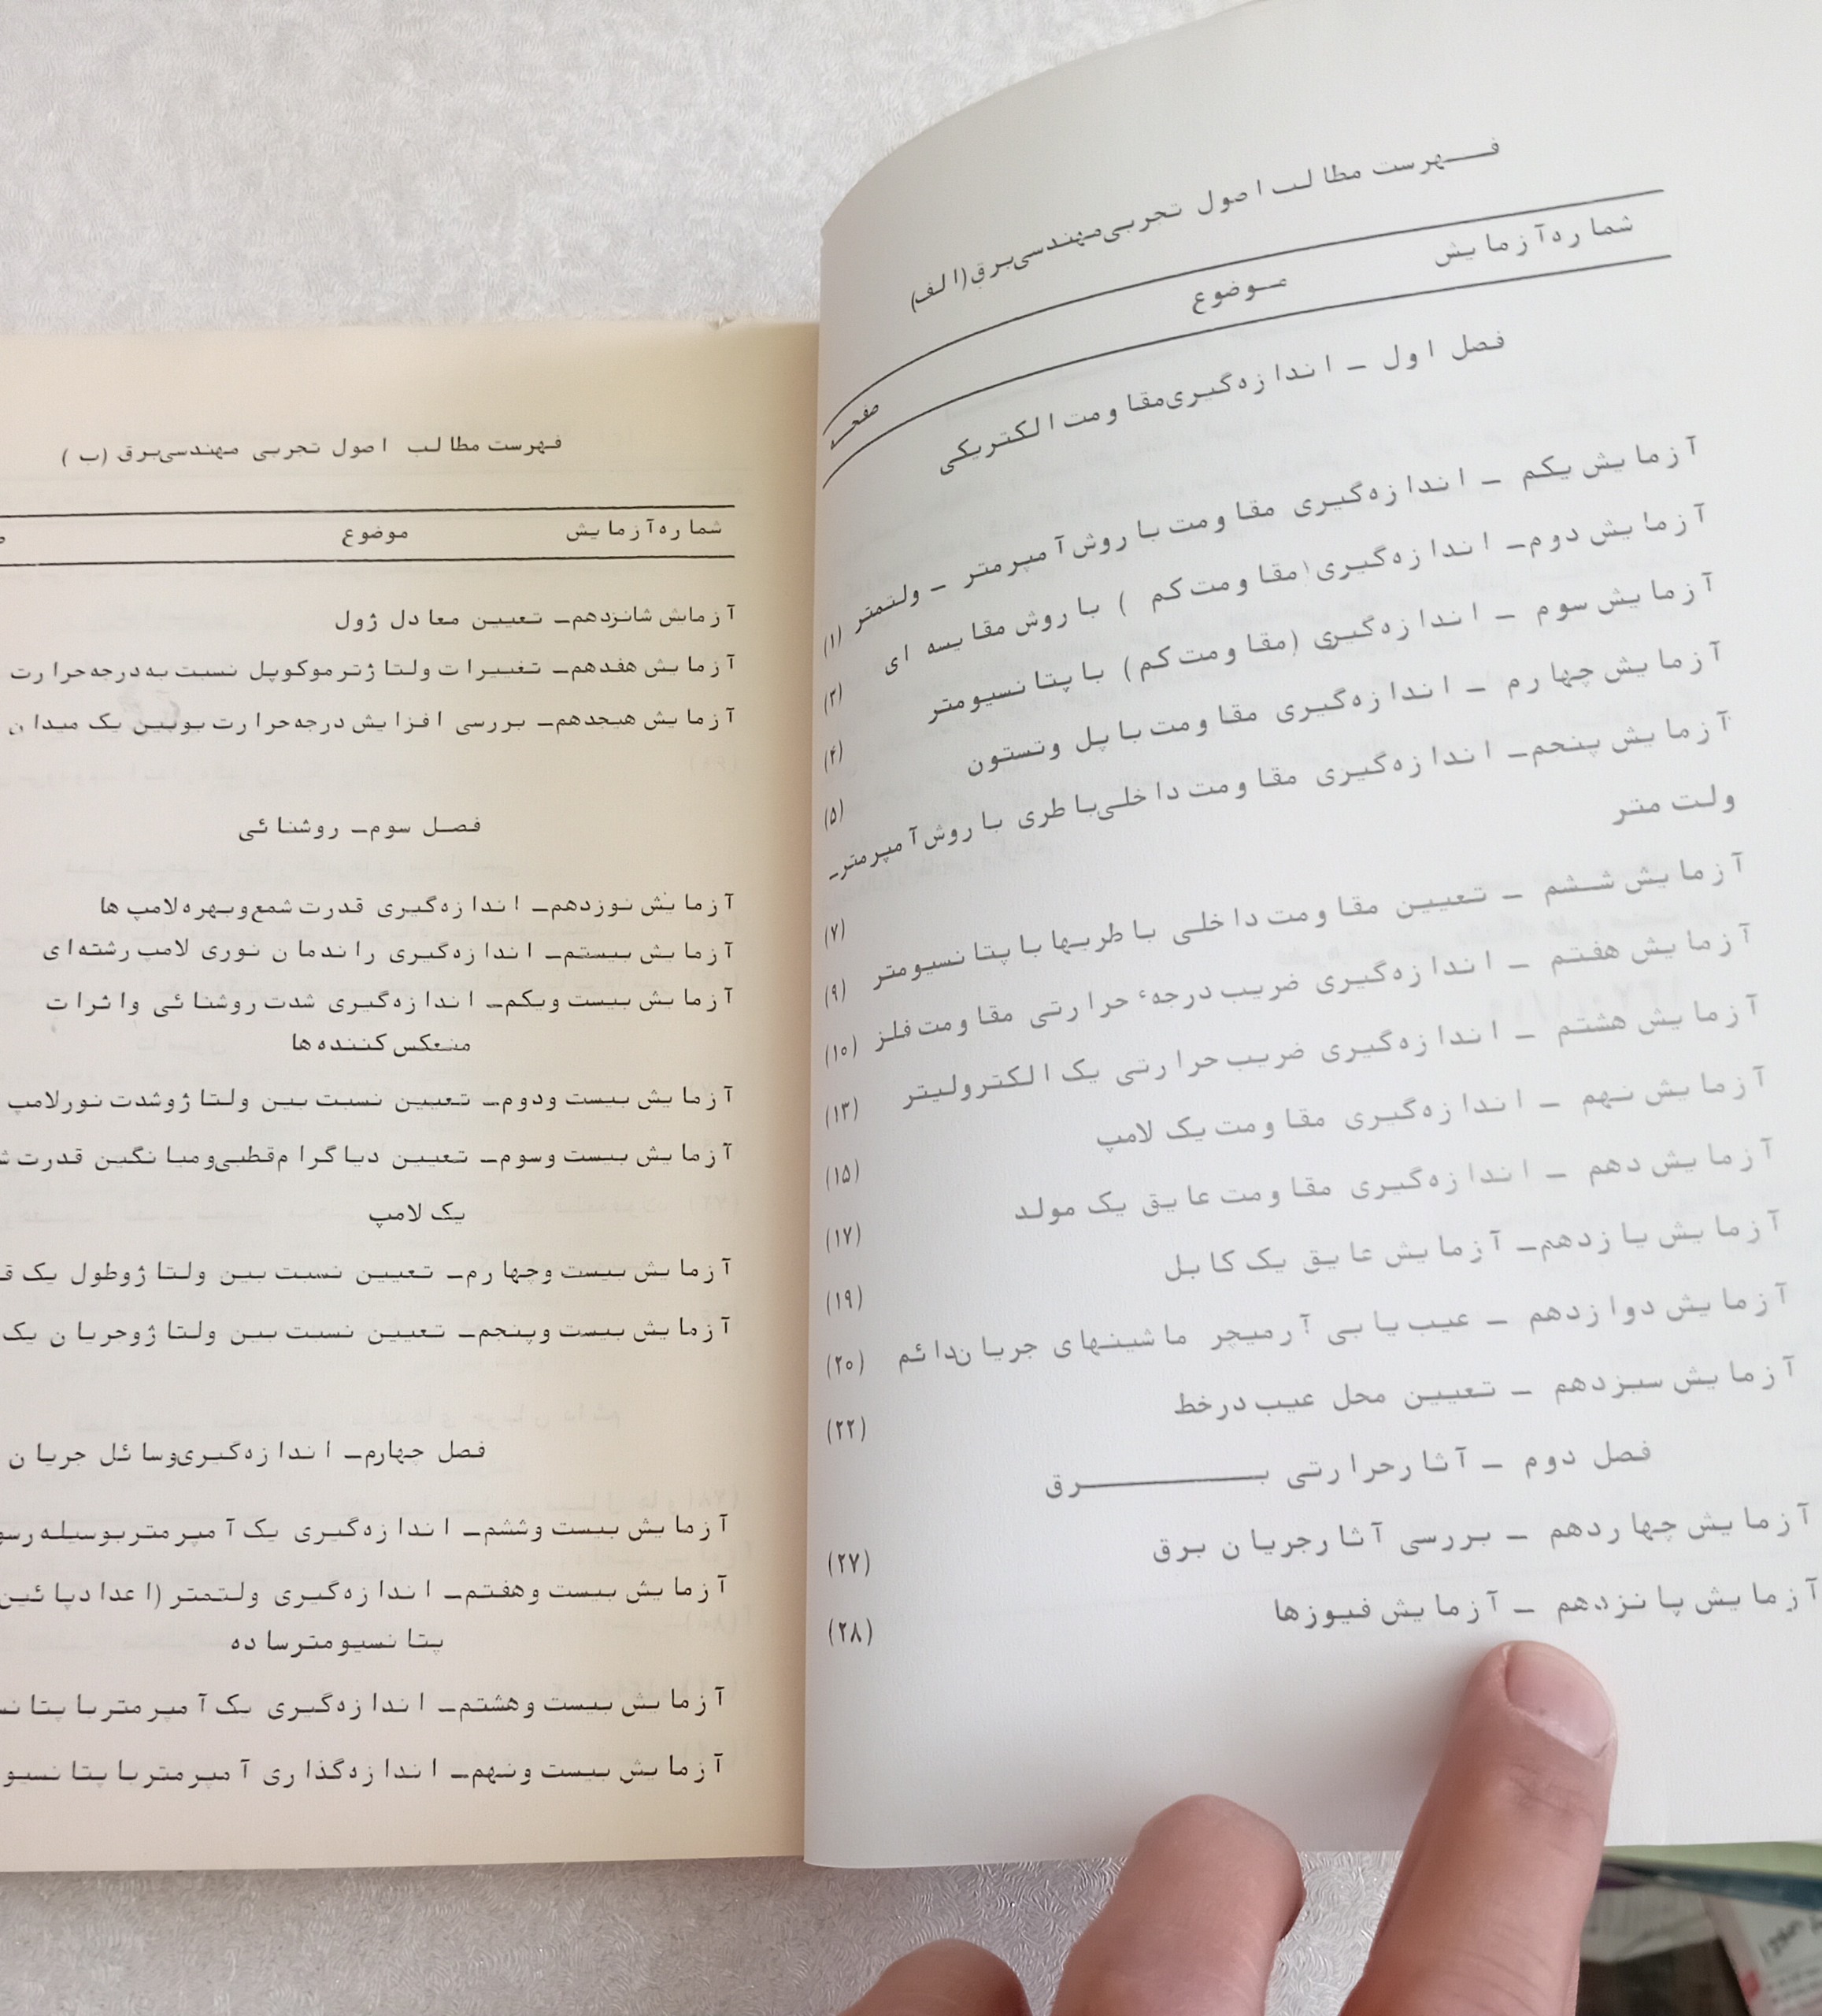 فهرست مطالب اصول تجربی مهندسی برق (الف)
شماره آزمایش موضوع صفحه
فصل اول ـ اندازه‌گیری مقاومت الکتریکی
آزمایش یکم ـ اندازه‌گیری مقاومت با روش آمپرمتر ـ ولتمتر (۱)
آزمایش دوم ـ اندازه‌گیری (مقاومت کم ) با روش مقایسه ای (۲)
آزمایش سوم ـ اندازه‌گیری (مقاومت کم) با پتانسیومتر (۴)
آزمایش چهارم ـ اندازه‌گیری مقاومت با پل وتستون (۵)
آزمایش پنجم ـ اندازه‌گیری مقاومت داخلی باطری با روش آمپرمتر ـ
ولت متر (۷)
آزمایش ششم ـ تعیین مقاومت داخلی باطریها با پتانسیومتر (۹)
آزمایش هفتم ـ اندازه‌گیری ضریب درجهء حرارتی مقاومت فلز (۱۰)
آزمایش هشتم ـ اندازه‌گیری ضریب حرارتی یک الکترولیتر (۱۳)
آزمایش نهم ـ اندازه‌گیری مقاومت یک لامپ (۱۵)
آزمایش دهم ـ اندازه‌گیری مقاومت عایق یک مولد (۱۷)
آزمایش یازدهم ـ آزمایش عایق یک کابل (۱۹)
آزمایش دوازدهم ـ عیب یابی آرمیچر ماشینهای جریان دائم (۲۰)
آزمایش سیزدهم ـ تعیین محل عیب درخط (۲۲)
فصل دوم ـ آثار حرارتی برق
آزمایش چهاردهم ـ بررسی آثار جریان برق (۲۷)
آزمایش پانزدهم ـ آزمایش فیوزها (۲۸)
فهرست مطالب اصول تجربی مهندسی برق (ب )
شماره آزمایش موضوع
آزمایش شانزدهم ـ تعیین معادل ژول
آزمایش هفدهم ـ تغییرات ولتاژ ترموکوپل نسبت به درجه حرارت
آزمایش هیجدهم ـ بررسی افزایش درجه حرارت بوبین یک میدان
فصل سوم ـ روشنائی
آزمایش نوزدهم ـ اندازه‌گیری قدرت شمع و بهره لامپ ها
آزمایش بیستم ـ اندازه‌گیری راندمان نوری لامپ رشته‌ای
آزمایش بیست ویکم ـ اندازه‌گیری شدت روشنائی و اثرات
منعکس کننده ها
آزمایش بیست ودوم ـ تعیین نسبت بین ولتاژ وشدت نورلامپ
آزمایش بیست وسوم ـ تعیین دیاگرام قطبی ومیانگین قدرت
یک لامپ
آزمایش بیست وچهارم ـ تعیین نسبت بین ولتاژ وطول یک
آزمایش بیست وپنجم ـ تعیین نسبت بین ولتاژ وجریان یک
فصل چهارم ـ اندازه‌گیری وسائل جریان
آزمایش بیست وششم ـ اندازه‌گیری یک آمپرمتر بوسیله
آزمایش بیست وهفتم ـ اندازه‌گیری ولتمتر (اعداد پائین
پتانسیومتر ساده
آزمایش بیست وهشتم ـ اندازه‌گیری یک آمپرمتر با
آزمایش بیست ونهم ـ اندازه‌گذاری آمپرمتر با